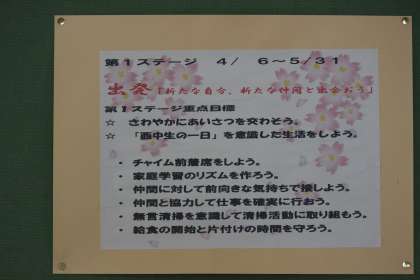 第1ステージ 4/ 6〜5/31
出発「新たな自分、新たな仲間と出会おう」
第1ステージ重点目標
☆ さわやかにあいさつを交わそう。
☆ 「西中生の一日」を意識した生活をしよう。
・ チャイム前着席をしよう。
・ 家庭学習のリズムを作ろう。
・ 仲間に対して前向きな気持ちで接しよう。
・ 仲間と協力して仕事を確実に行おう。
・ 無言清掃を意識して清掃活動に取り組もう。
・ 給食の開始と片付けの時間を守ろう。